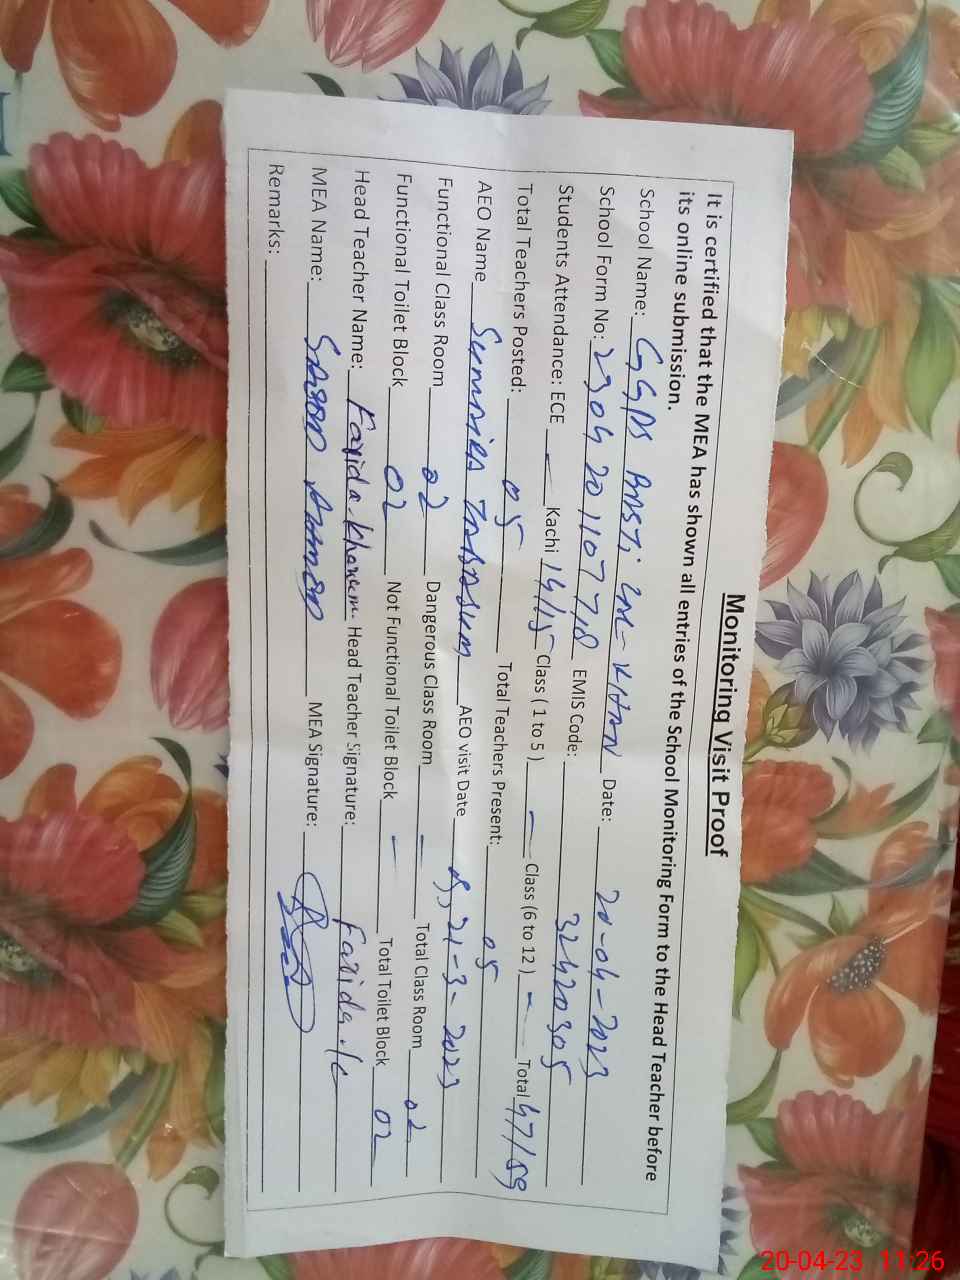 Monitoring Visit Proof
It is certified that the MEA has shown all entries of the School Monitoring Form to the Head Teacher before
its online submission.
School Name: GGPS BASTI KHAN Date: 20-04-2023
School Form No: 2304201107718 EMIS Code: 32420305
Students Attendance: ECE — Kachi 14/15 Class ( 1 to 5 ) — Class (6 to 12 ) - Total 47/59
Total Teachers Posted: 05 Total Teachers Present: 05
AEO Name Sumaira TABASUM AEO visit Date 21-3-2023
Functional Class Room 02 Dangerous Class Room — Total Class Room 02
Functional Toilet Block 02 Not Functional Toilet Block — Total Toilet Block 02
Head Teacher Name: Farida Khanum Head Teacher Signature: Farida.k
MEA Name: AHMED MEA Signature:
Remarks:
20-04-23 11:26